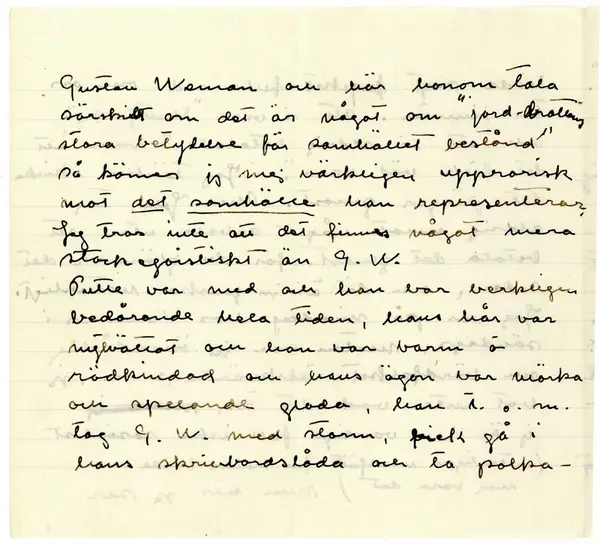 Gustav Weman och hör honom tala
särskilt om det är något om "jord-drottens
stora betydelse för samhället bestånd"
så känner jg mej värkligen upprorisk
mot det samhälle han representerar,
Jag tror inte att det finnes något mera
stockegoistiskt än G. W.
Putte var med och han var verkligen
bedårande hela tiden, hans hår var
nytvättat och han var varm o
rödkindad och hans ögon var mörka
och spelande glada, han t. o. m.
tog G. W. med storm, fick gå i
hans skrivbordslåda och ta polka-